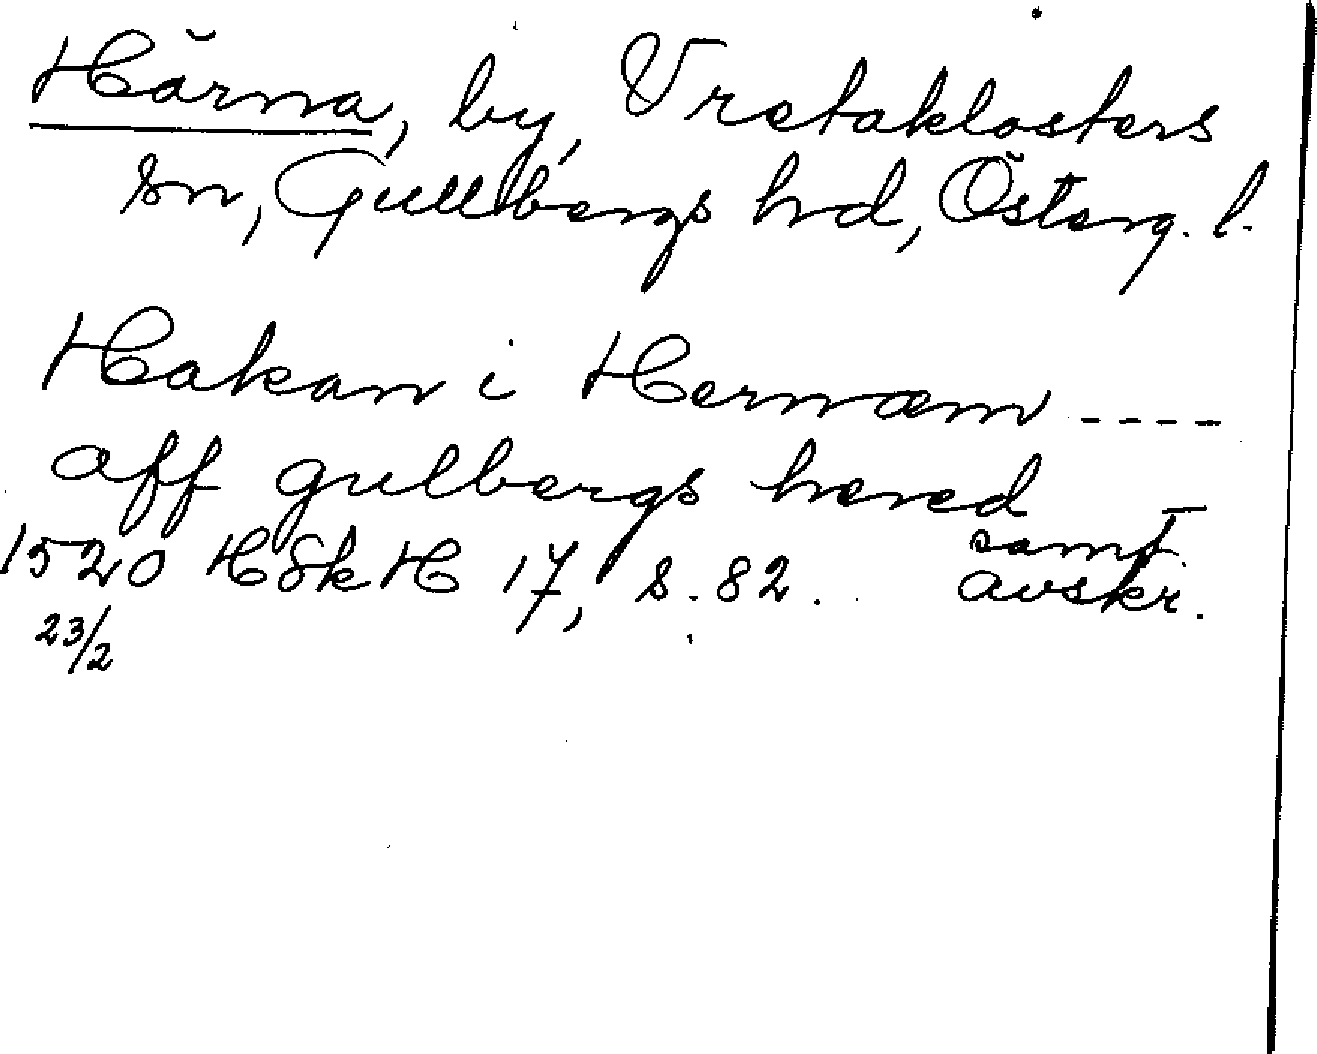 Härna, by, Vretaklosters
sn, Gullbergs hd, Österg. l.
Hakan i Hernæm ----
aff gulbergs hered
1520 HSkH 17, s. 82. samt. avskr.
23/2